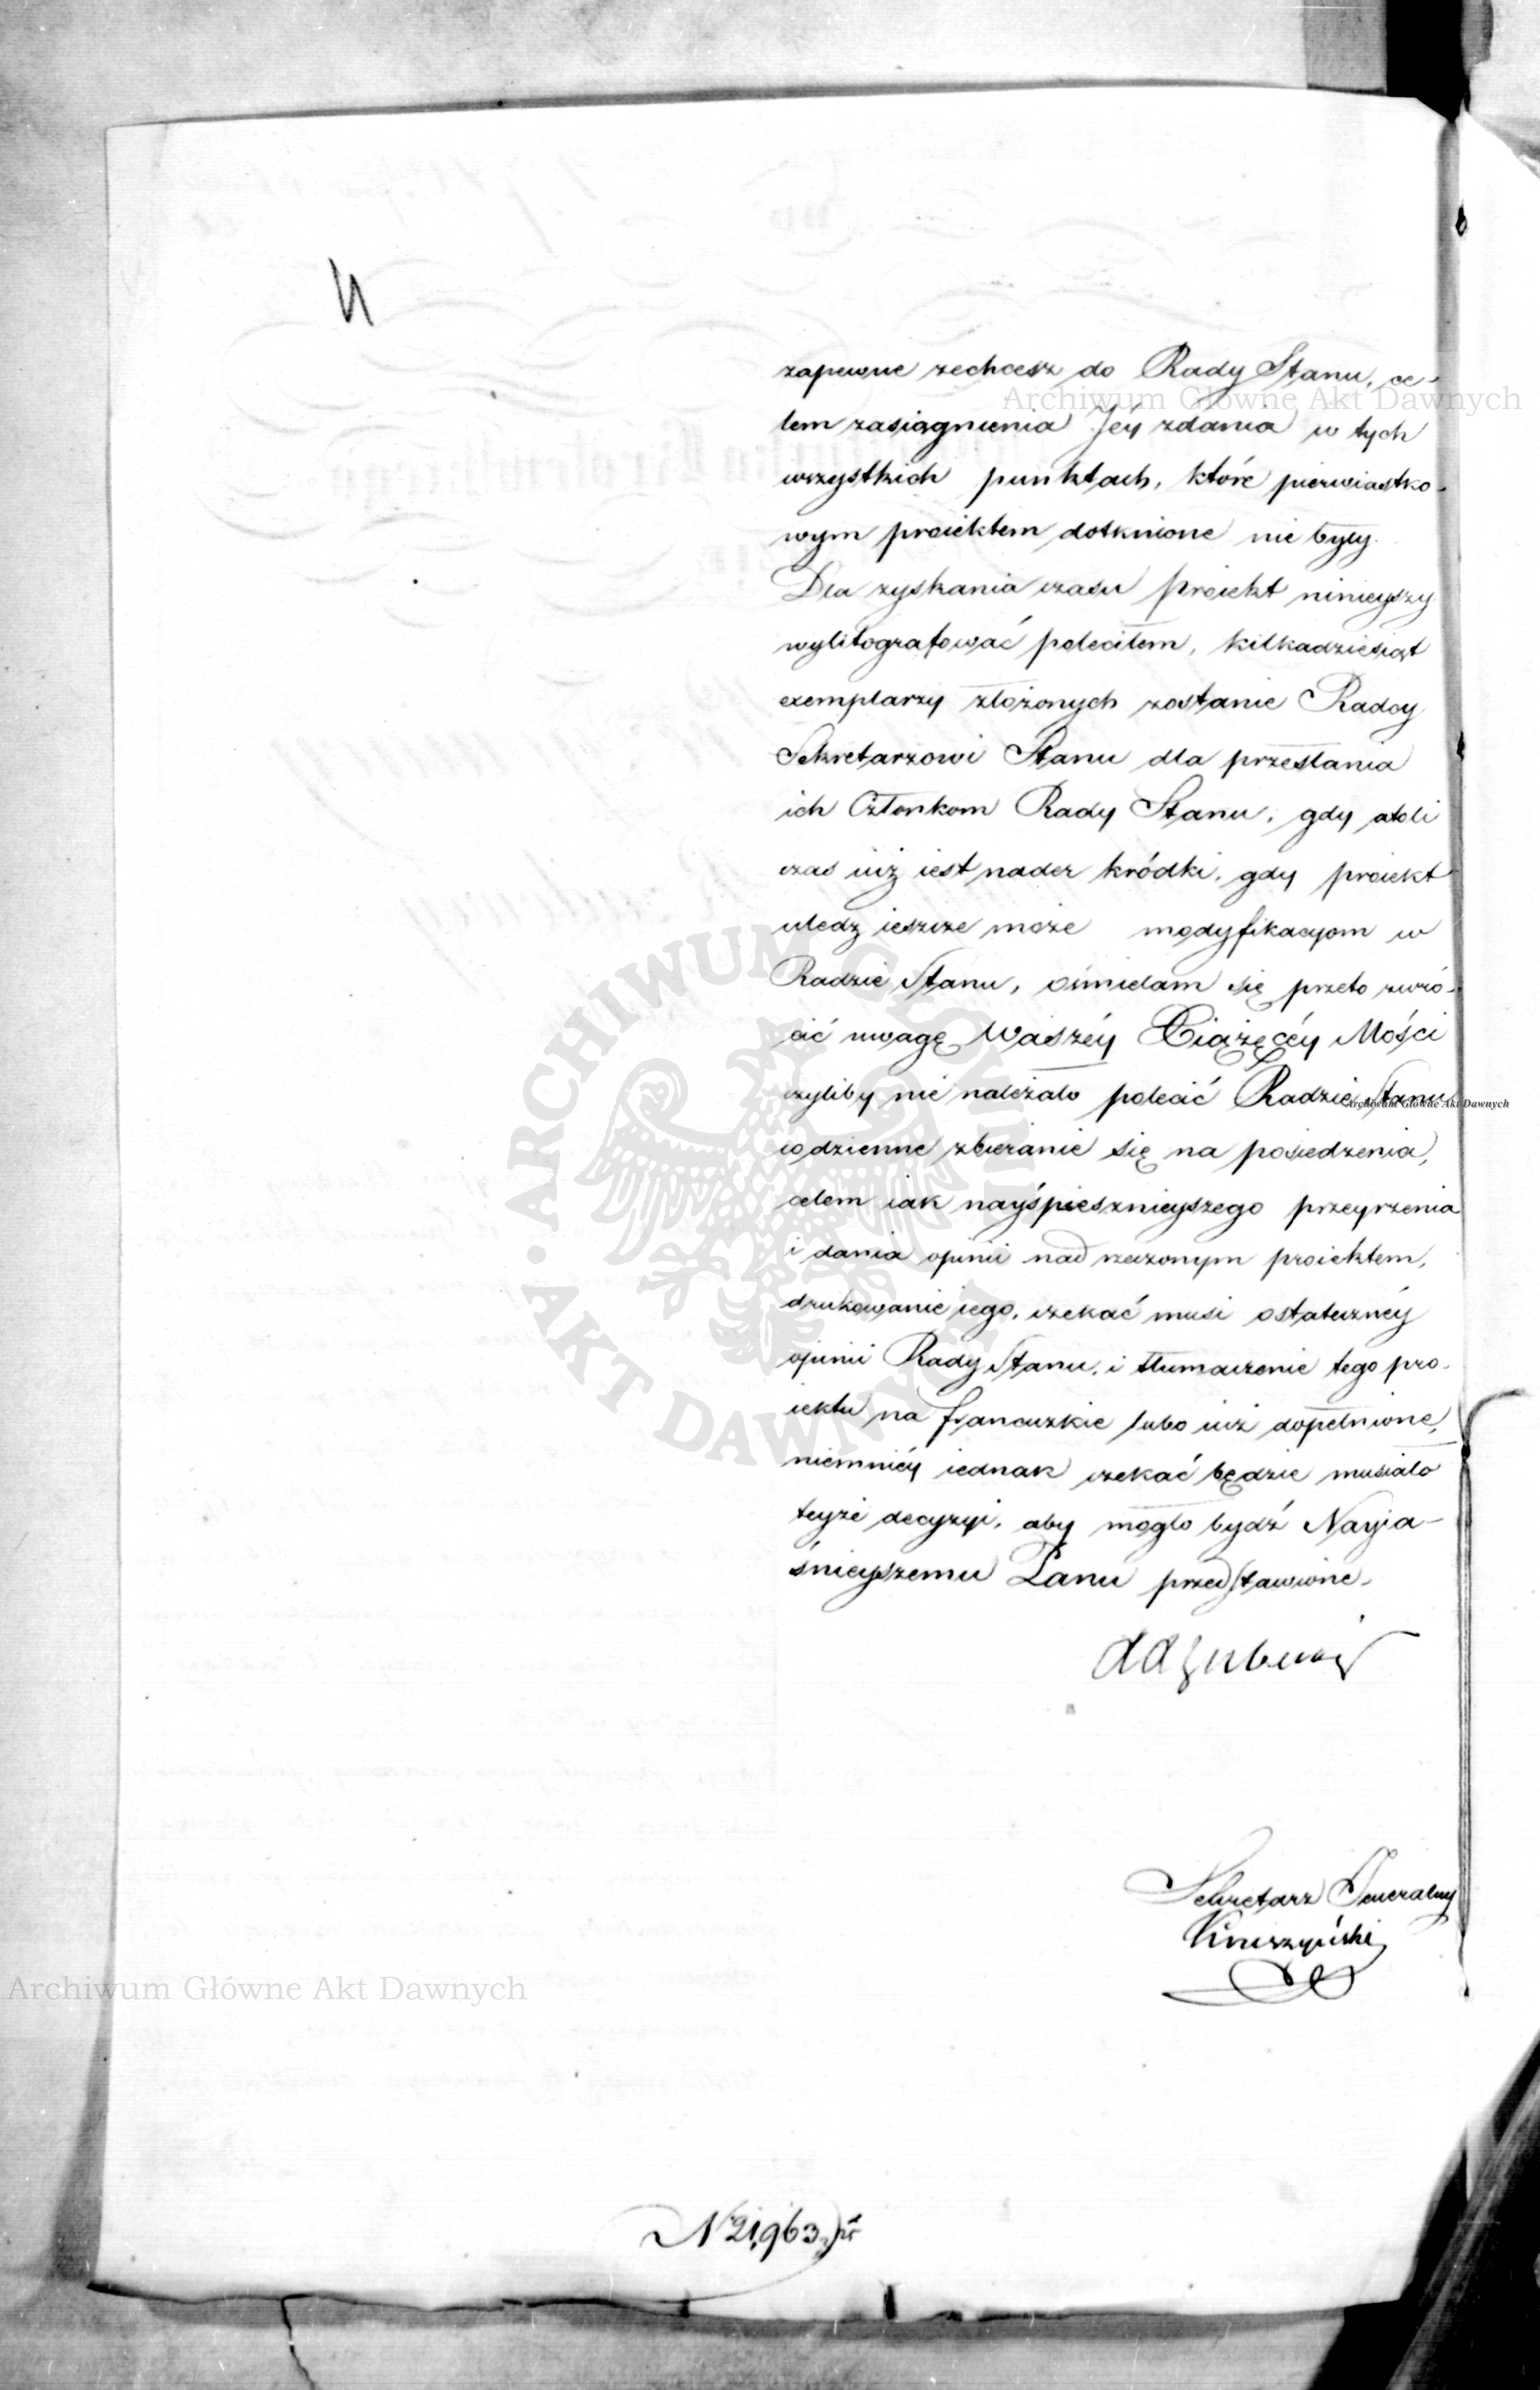 zapewne zechcesz do Rady Stanu, ce-
Archiwum Główne Akt Dawnych
lem zasiągnienia Jéy zdania w tych
wszystkich punktach, które pierwiastko-
wym proiektem dotknione nie były.
Dla zyskania czasu proiekt ninieyszy
wylitografować poleciłem, kilkadziesiąt
exemplarzy złożonych zostanie Radcy
Sekretarzowi Stanu dla przesłania
ich Członkom Rady Stanu; gdy atoli
czas iuż iest nader kródki, gdy proiekt
uledz ieszcze może modyfikacyom w
Radzie Stanu, ośmielam się przeto zwró-
cić uwagę Waszéy Xiążęcéy Mości
czyliby nie należało polecić Radzie Stanu
Archiwum Główne Akt Dawnych
codzienne zbieranie się na posiedzenia,
celem iak nayśpiesznieyszego przeyrzenia
i dania opinii nad rzeczonym proiektem,
drukowanie iego, czekać musi ostatecznéy
opinii Rady Stanu, i tłumaczenie tego pro-
iektu na francuzkie lubo iuż dopełnione,
niemniéy iednak czekać będzie musiało
teyże decyzyi, aby mogło bydź Nayia-
śnieyszemu Panu przedstawione.
Sekretarz Generalny
Archiwum Główne Akt Dawnych
N 21,963
ARCHIWUM GŁÓWNE • AKT DAWNYCH •